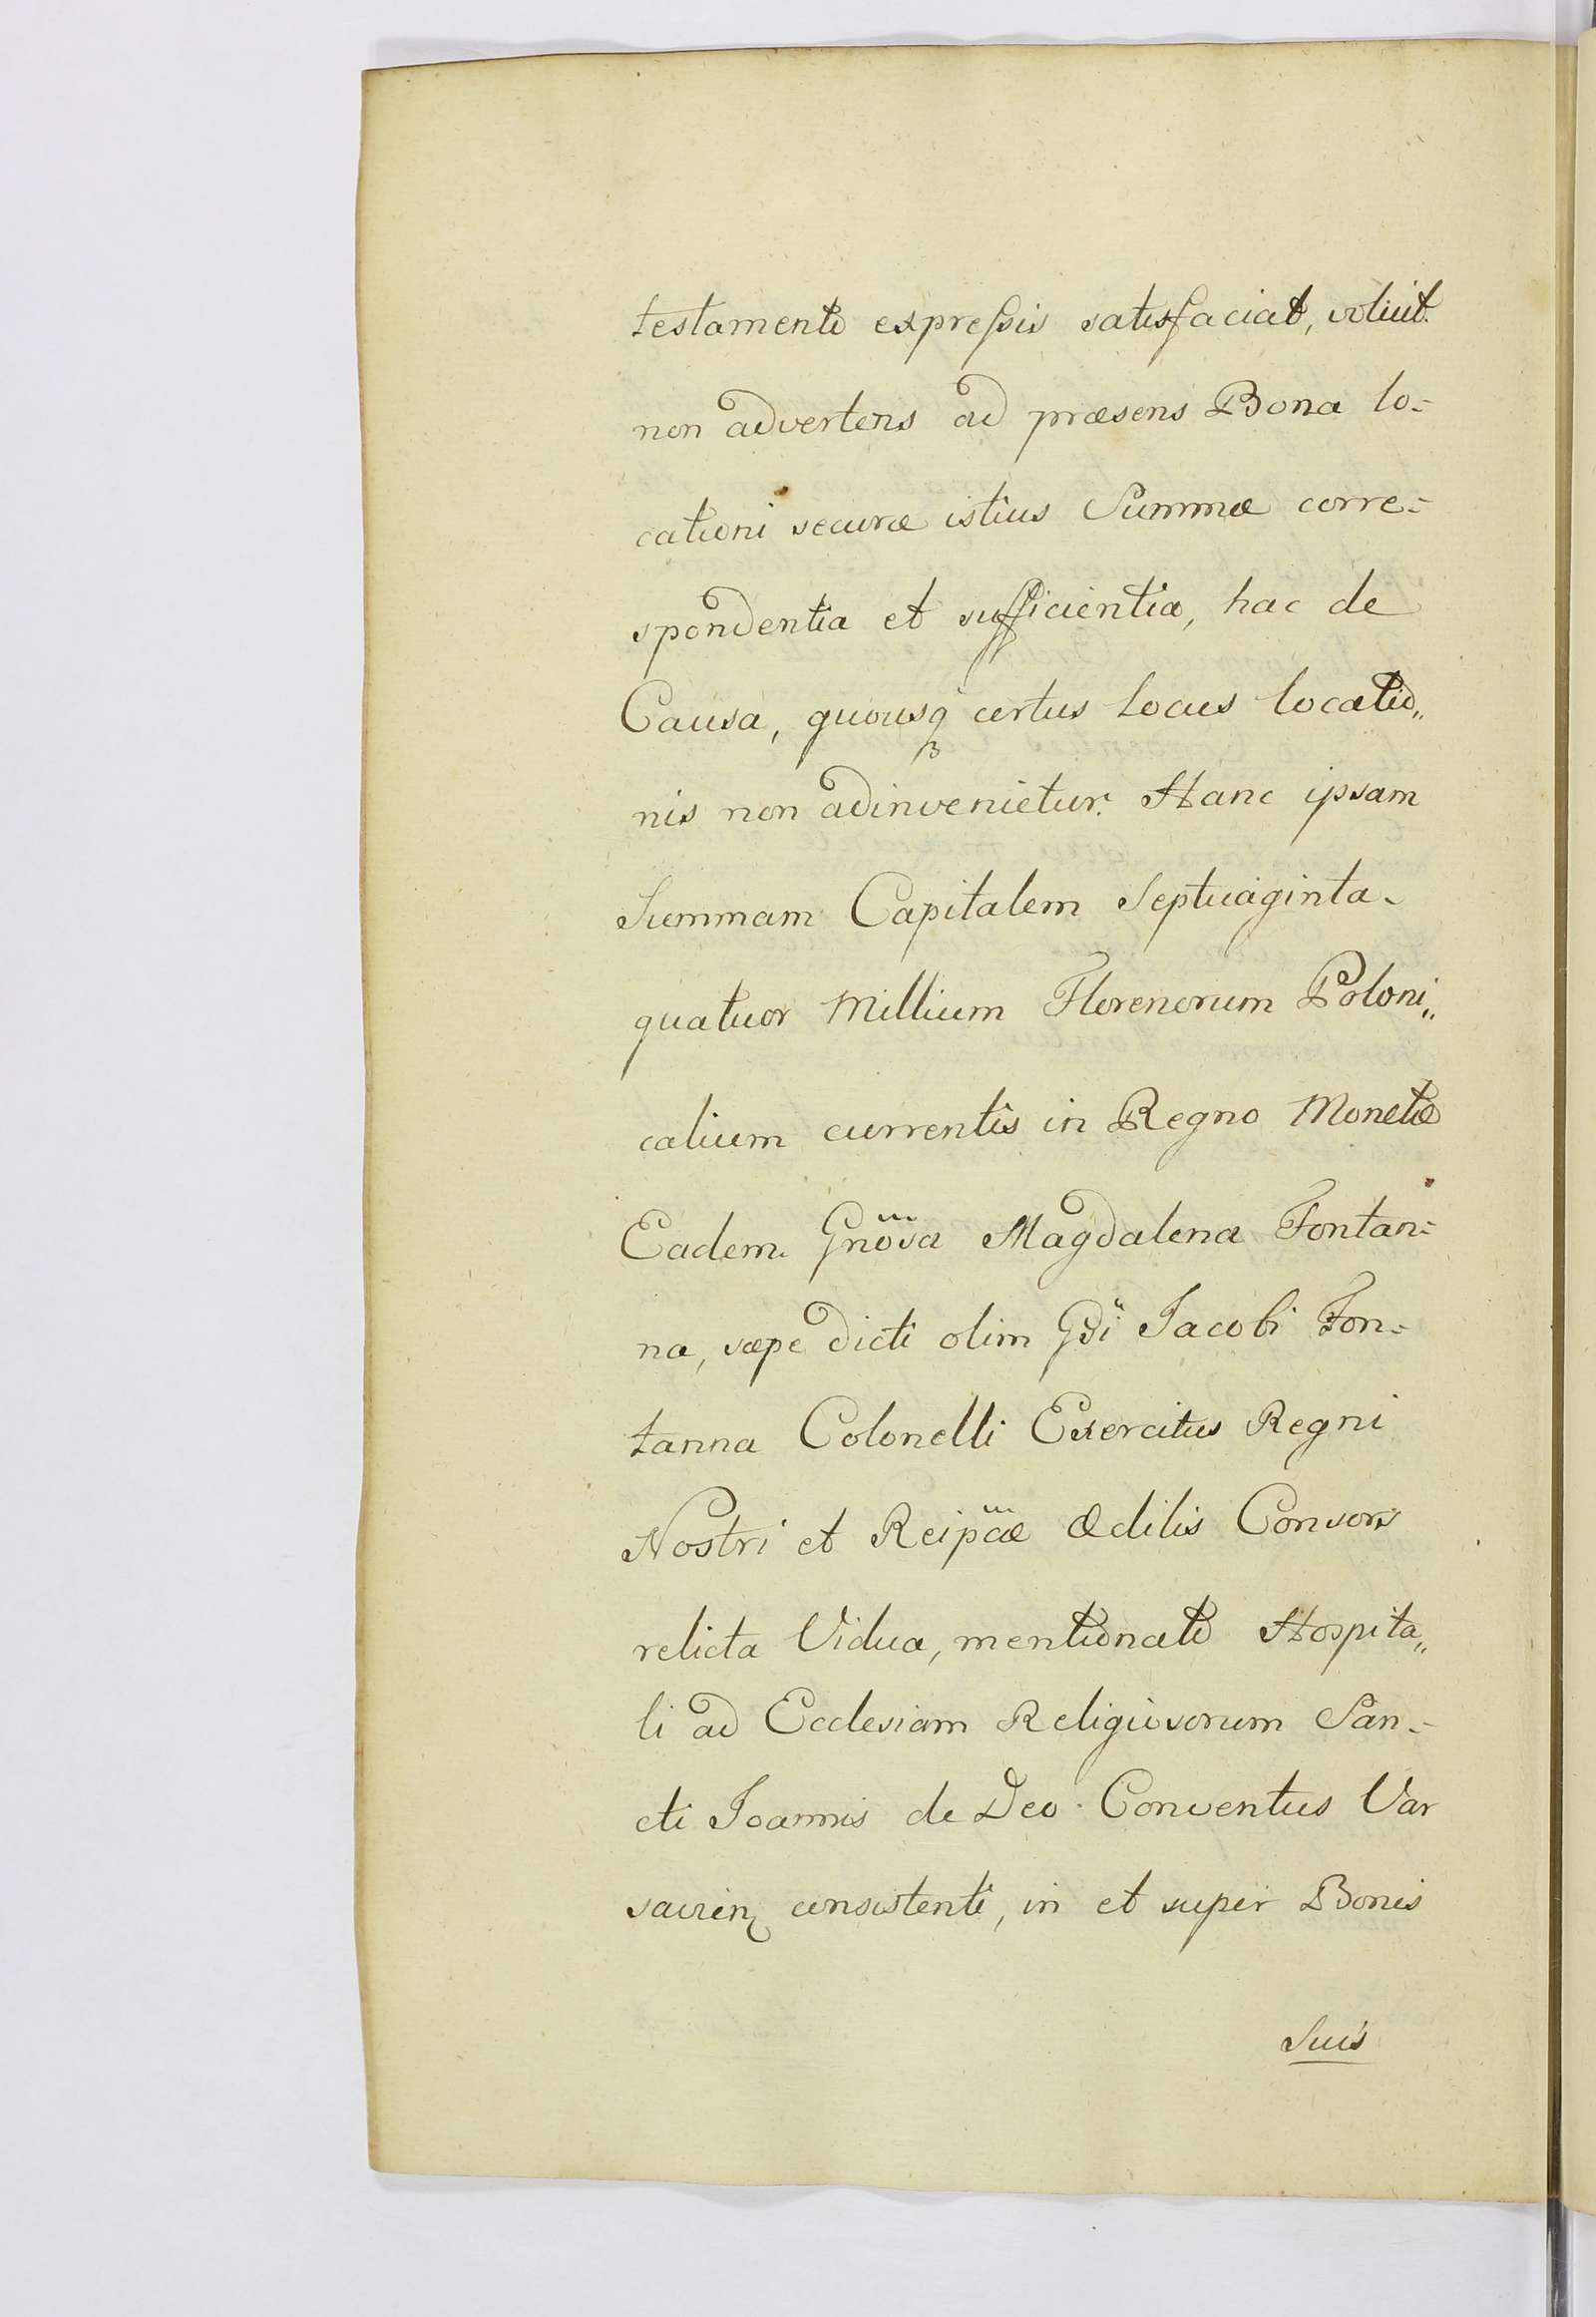 testamento expreſsis satisfaciat, voluit.
non advertens ad præsens Bona lo=
cationi securæ istius Summæ corre=
spondentia et sufficientia, hac de
Causa, quousq certus Locus locatio„
nis non adinvenietur. Hanc ipsam
Summam Capitalem Septuaginta-
quatuor Millium Florenorum Poloni„
calium currentis in Regno Monetæ
Eadem Gnösa Magdalena Fontan=
na, sæpe dicti olim Gdi Jacobi Fon=
tanna Colonelli Exercitus Regni
Nostri et Reipcæ Ædilis Consors
relicta Vidua, mentionato Hospita„
li ad Ecclesiam Religiosorum San=
cti Joannis de Deo Conventus Var
savien consistenti, in et super Bonis
Suis